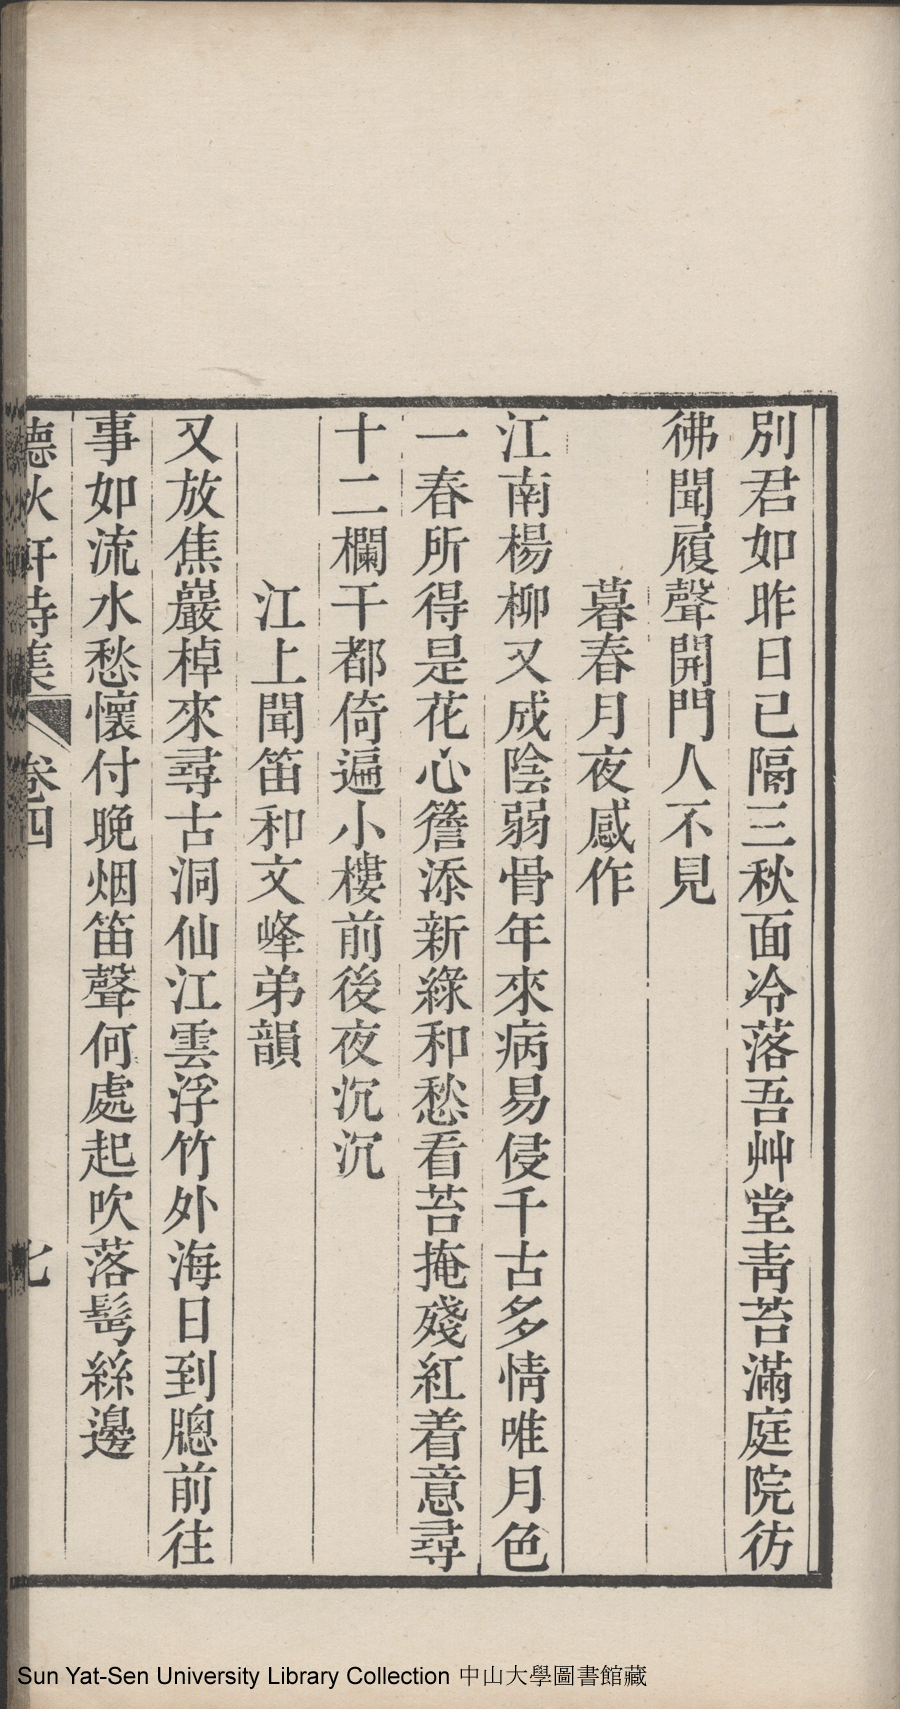 別君如昨日已隔三秋面冷落吾艸堂青苔滿庭院彷
彿聞履聲開門人不見
暮春月夜感作
江南楊柳又成陰弱骨年來病易侵千古多情唯月色
一春所得是花心簷添新綠和愁看苔掩殘紅着意尋
十二欄干都倚遍小樓前後夜沉沉
江上聞笛和文峰弟韻
又放焦巖棹來尋古洞仙江雲浮竹外海日到牎前往
事如流水愁懷付晚烟笛聲何處起吹落髩絲邊
秋軒詩集 卷四
Sun Yat-Sen University Library Collection 中山大學圖書館藏